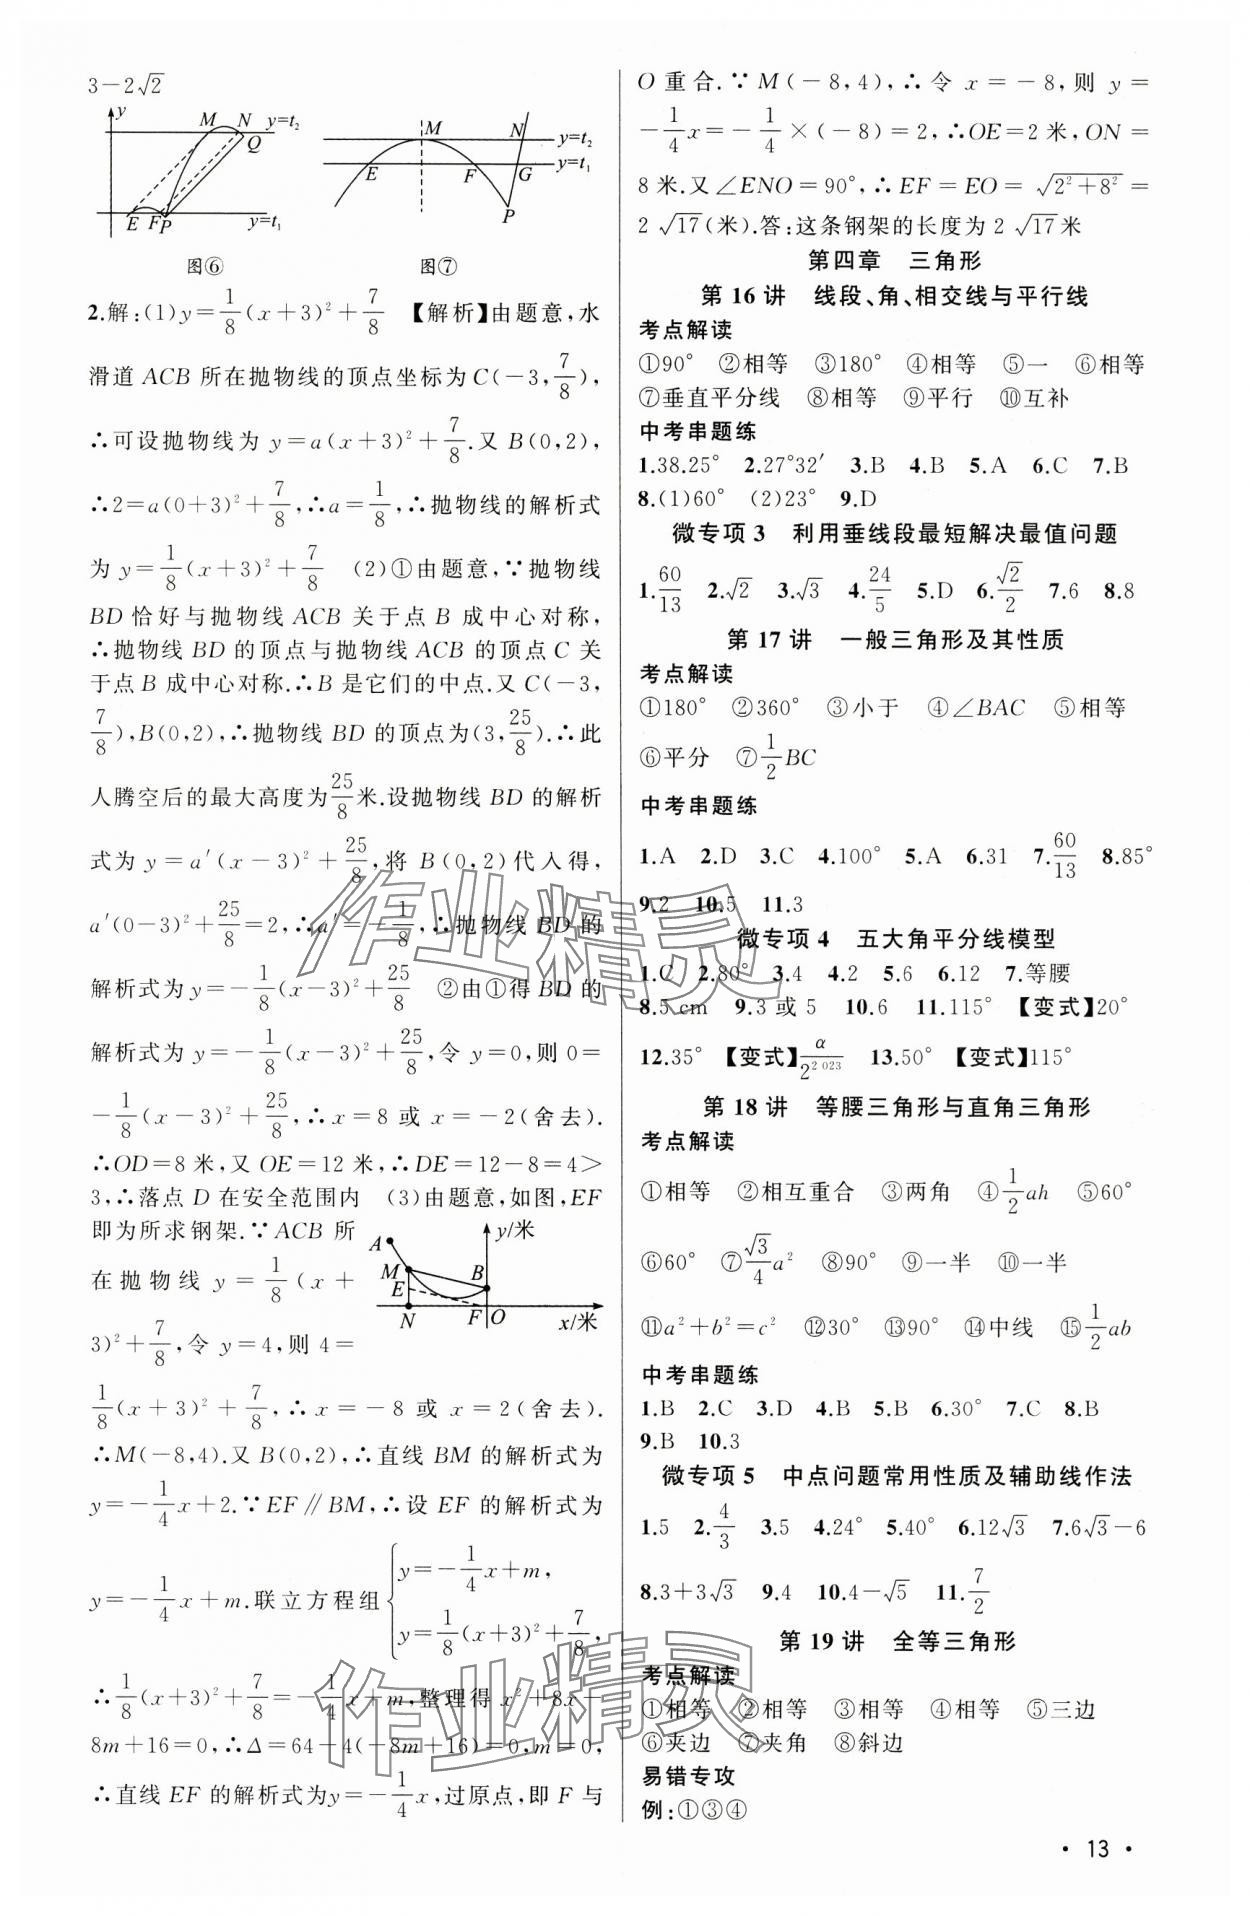 3－2√2
y M N y=t₂ Q E F P y=t₁
M N y=t₂ E F G y=t₁ P
图⑥ 图⑦
2.解:(1)y=1/8(x+3)²+7/8 【解析】由题意,水
滑道 ACB 所在抛物线的顶点坐标为 C(－3,7/8),
∴可设抛物线为 y=a(x+3)²+7/8.又 B(0,2),
∴2=a(0+3)²+7/8,∴a=1/8,∴抛物线的解析式
为 y=1/8(x+3)²+7/8 (2)①由题意,∵抛物线
BD 恰好与抛物线 ACB 关于点 B 成中心对称,
∴抛物线 BD 的顶点与抛物线 ACB 的顶点 C 关
于点 B 成中心对称.∴B 是它们的中点.又 C(－3,
7/8),B(0,2),∴抛物线 BD 的顶点为(3,25/8).∴此
人腾空后的最大高度为25/8米.设抛物线 BD 的解析
式为 y=a′(x－3)²+25/8,将 B(0,2)代入得,
a′(0－3)²+25/8=2,∴a′=－1/8,∴抛物线 BD 的
解析式为 y=－1/8(x－3)²+25/8 ②由①得 BD 的
解析式为 y=－1/8(x－3)²+25/8,令 y=0,则 0=
－1/8(x－3)²+25/8,∴x=8 或 x=－2(舍去).
∴OD=8 米,又 OE=12 米,∴DE=12－8=4>
3,∴落点 D 在安全范围内 (3)由题意,如图,EF
即为所求钢架.∵ACB 所
在抛物线 y=1/8(x+
3)²+7/8,令 y=4,则 4=
A M E N B F O y/米 x/米
1/8(x+3)²+7/8,∴x=－8 或 x=2(舍去).
∴M(－8,4).又 B(0,2),∴直线 BM 的解析式为
y=－1/4x+2.∵EF∥BM,∴设 EF 的解析式为
y=－1/4x+m.联立方程组{y=－1/4x+m, y=1/8(x+3)²+7/8,
∴1/8(x+3)²+7/8=－1/4x+m,整理得 x²+8x－
8m+16=0,∴Δ=64－4(－8m+16)=0,m=0,
∴直线 EF 的解析式为y=－1/4x,过原点,即 F 与
O 重合.∵M(－8,4),∴令 x=－8,则 y=
－1/4x=－1/4×(－8)=2,∴OE=2 米,ON=
8 米.又∠ENO=90°,∴EF=EO=√(2²+8²)=
2√17(米).答:这条钢架的长度为 2√17米
第四章 三角形
第 16 讲 线段、角、相交线与平行线
考点解读
①90° ②相等 ③180° ④相等 ⑤一 ⑥相等
⑦垂直平分线 ⑧相等 ⑨平行 ⑩互补
中考串题练
1.38.25° 2.27°32′ 3.B 4.B 5.A 6.C 7.B
8.(1)60° (2)23° 9.D
微专项 3 利用垂线段最短解决最值问题
1.60/13 2.√2 3.√3 4.24/5 5.D 6.√2/2 7.6 8.8
第 17 讲 一般三角形及其性质
考点解读
①180° ②360° ③小于 ④∠BAC ⑤相等
⑥平分 ⑦1/2BC
中考串题练
1.A 2.D 3.C 4.100° 5.A 6.31 7.60/13 8.85°
9.2 10.5 11.3
微专项 4 五大角平分线模型
1.C 2.80° 3.4 4.2 5.6 6.12 7.等腰
8.5 cm 9.3 或 5 10.6 11.115° 【变式】20°
12.35° 【变式】α/2^2 023 13.50° 【变式】115°
第 18 讲 等腰三角形与直角三角形
考点解读
①相等 ②相互重合 ③两角 ④1/2ah ⑤60°
⑥60° ⑦√3/4a² ⑧90° ⑨一半 ⑩一半
⑪a²+b²=c² ⑫30° ⑬90° ⑭中线 ⑮1/2ab
中考串题练
1.B 2.C 3.D 4.B 5.B 6.30° 7.C 8.B
9.B 10.3
微专项 5 中点问题常用性质及辅助线作法
1.5 2.4/3 3.5 4.24° 5.40° 6.12√3 7.6√3－6
8.3+3√3 9.4 10.4－√5 11.7/2
第 19 讲 全等三角形
考点解读
①相等 ②相等 ③相等 ④相等 ⑤三边
⑥夹边 ⑦夹角 ⑧斜边
易错专攻
例:①③④
· 13 ·
作业精灵
作业精灵